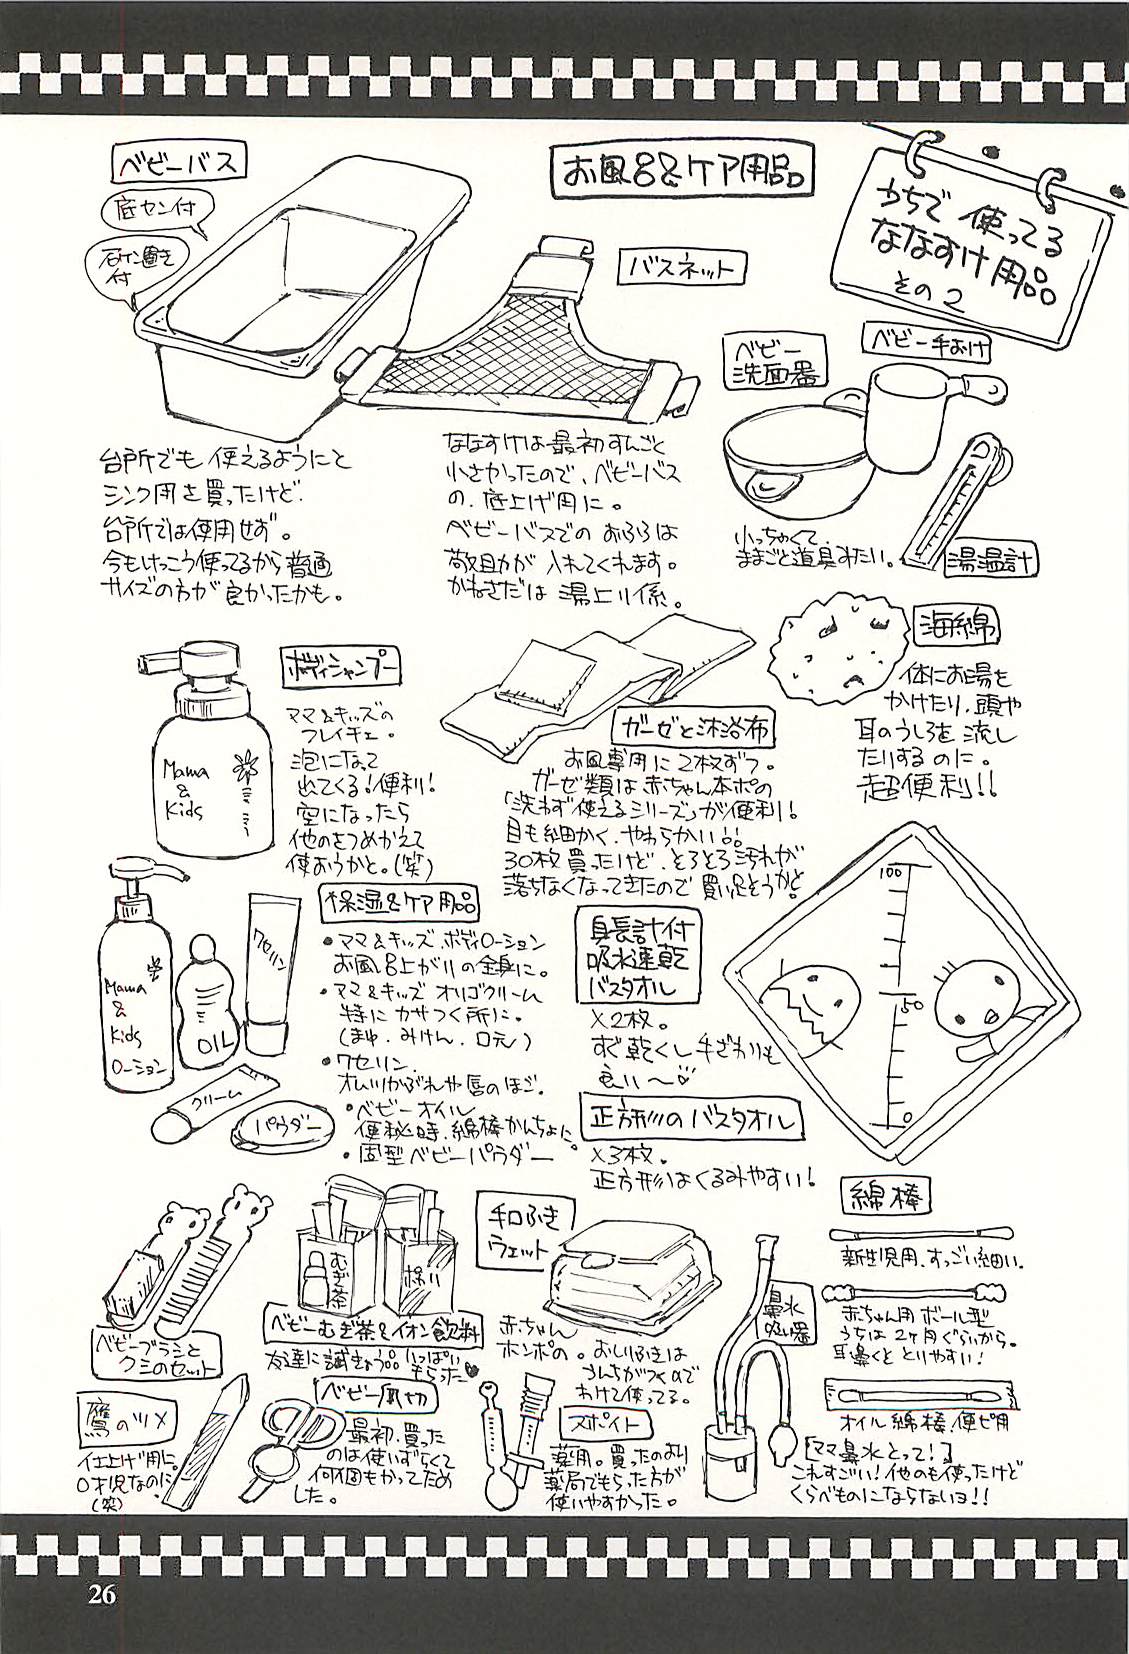 うちで使ってる
ななすけ用品
その2
お風呂&ケア用品
ベビーバス
底セン付
石ケン置き
付
台所でも使えるようにと
シンク用を買ったけど、
台所では使用せず。
今もけっこう使ってるから普通
サイズの方が良かったかも。
バスネット
ななすけは最初すんごく
小さかったので、ベビーバス
の、底上げ用に。
ベビーバスでのおふろは
敬助が入れてくれます。
かねさだは湯上り係。
ベビー
洗面器
ベビー手おけ
小っちゃくて、
ままごと道具みたい。
湯温計
海綿
体にお湯を
かけたり、頭や
耳のうしろを流し
たりするのに。
超便利!!
ボディシャンプー
ママ&キッズの
フレイチェ。
泡になって
出てくる!便利!
空になったら
他のをつめかえて
使おうかと。(笑)
Mama
&
Kids
ガーゼと沐浴布
お風呂専用に2枚ずつ。
ガーゼ類は赤ちゃん本ポの
「洗わず使えるシリーズ」が便利!
目も細かく、やわらかい
30枚買ったけど、とろとろ汚れが
落ちなくなってきたので買い足そうかと。
保湿&ケア用品
・ママ&キッズ ボディローション
お風呂上がりの全身に。
・ママ&キッズ オリゴクリーム
特にカサつく所に。
(まゆ、みけん、口元)
・ワセリン
オムツかぶれや唇のほご。
・ベビーオイル
便秘時、綿棒かんちょに。
・固型ベビーパウダー
Mama
&
Kids
ローション
OIL
ワセリン
クリーム
パウダー
身長計付
吸水速乾
バスタオル
×2枚。
すぐ乾くし手ざわりも
良い〜♡
100
50
0
正方形のバスタオル
×3枚。
正方形はくるみやすい!
ベビーブラシと
クシのセット
むぎ茶
ベビーむぎ茶&イオン飲料
友達に試きょう品いっぱい
もらった♥
手口ふき
ウェット
赤ちゃん
ホンポの。おしりふきは
うんちがつくので
わけて使ってる。
綿棒
新生児用、すっごい細い。
赤ちゃん用ボール型
うちは2ヶ月ぐらいから。
耳鼻くそとりやすい!
オイル綿棒、便ピ用
鼻水
吸い器
[ママ鼻水とって!]
これすごい!他のも使ったけど
くらべものにならないヨ!!
鷹のツメ
仕上げ用に。
0才児なのに。
(笑)
ベビー爪切
最初、買った
のは使いずらくて
何個もかってため
した。
スポイト
薬用。買ったのより
薬局でもらった方が
使いやすかった。
26